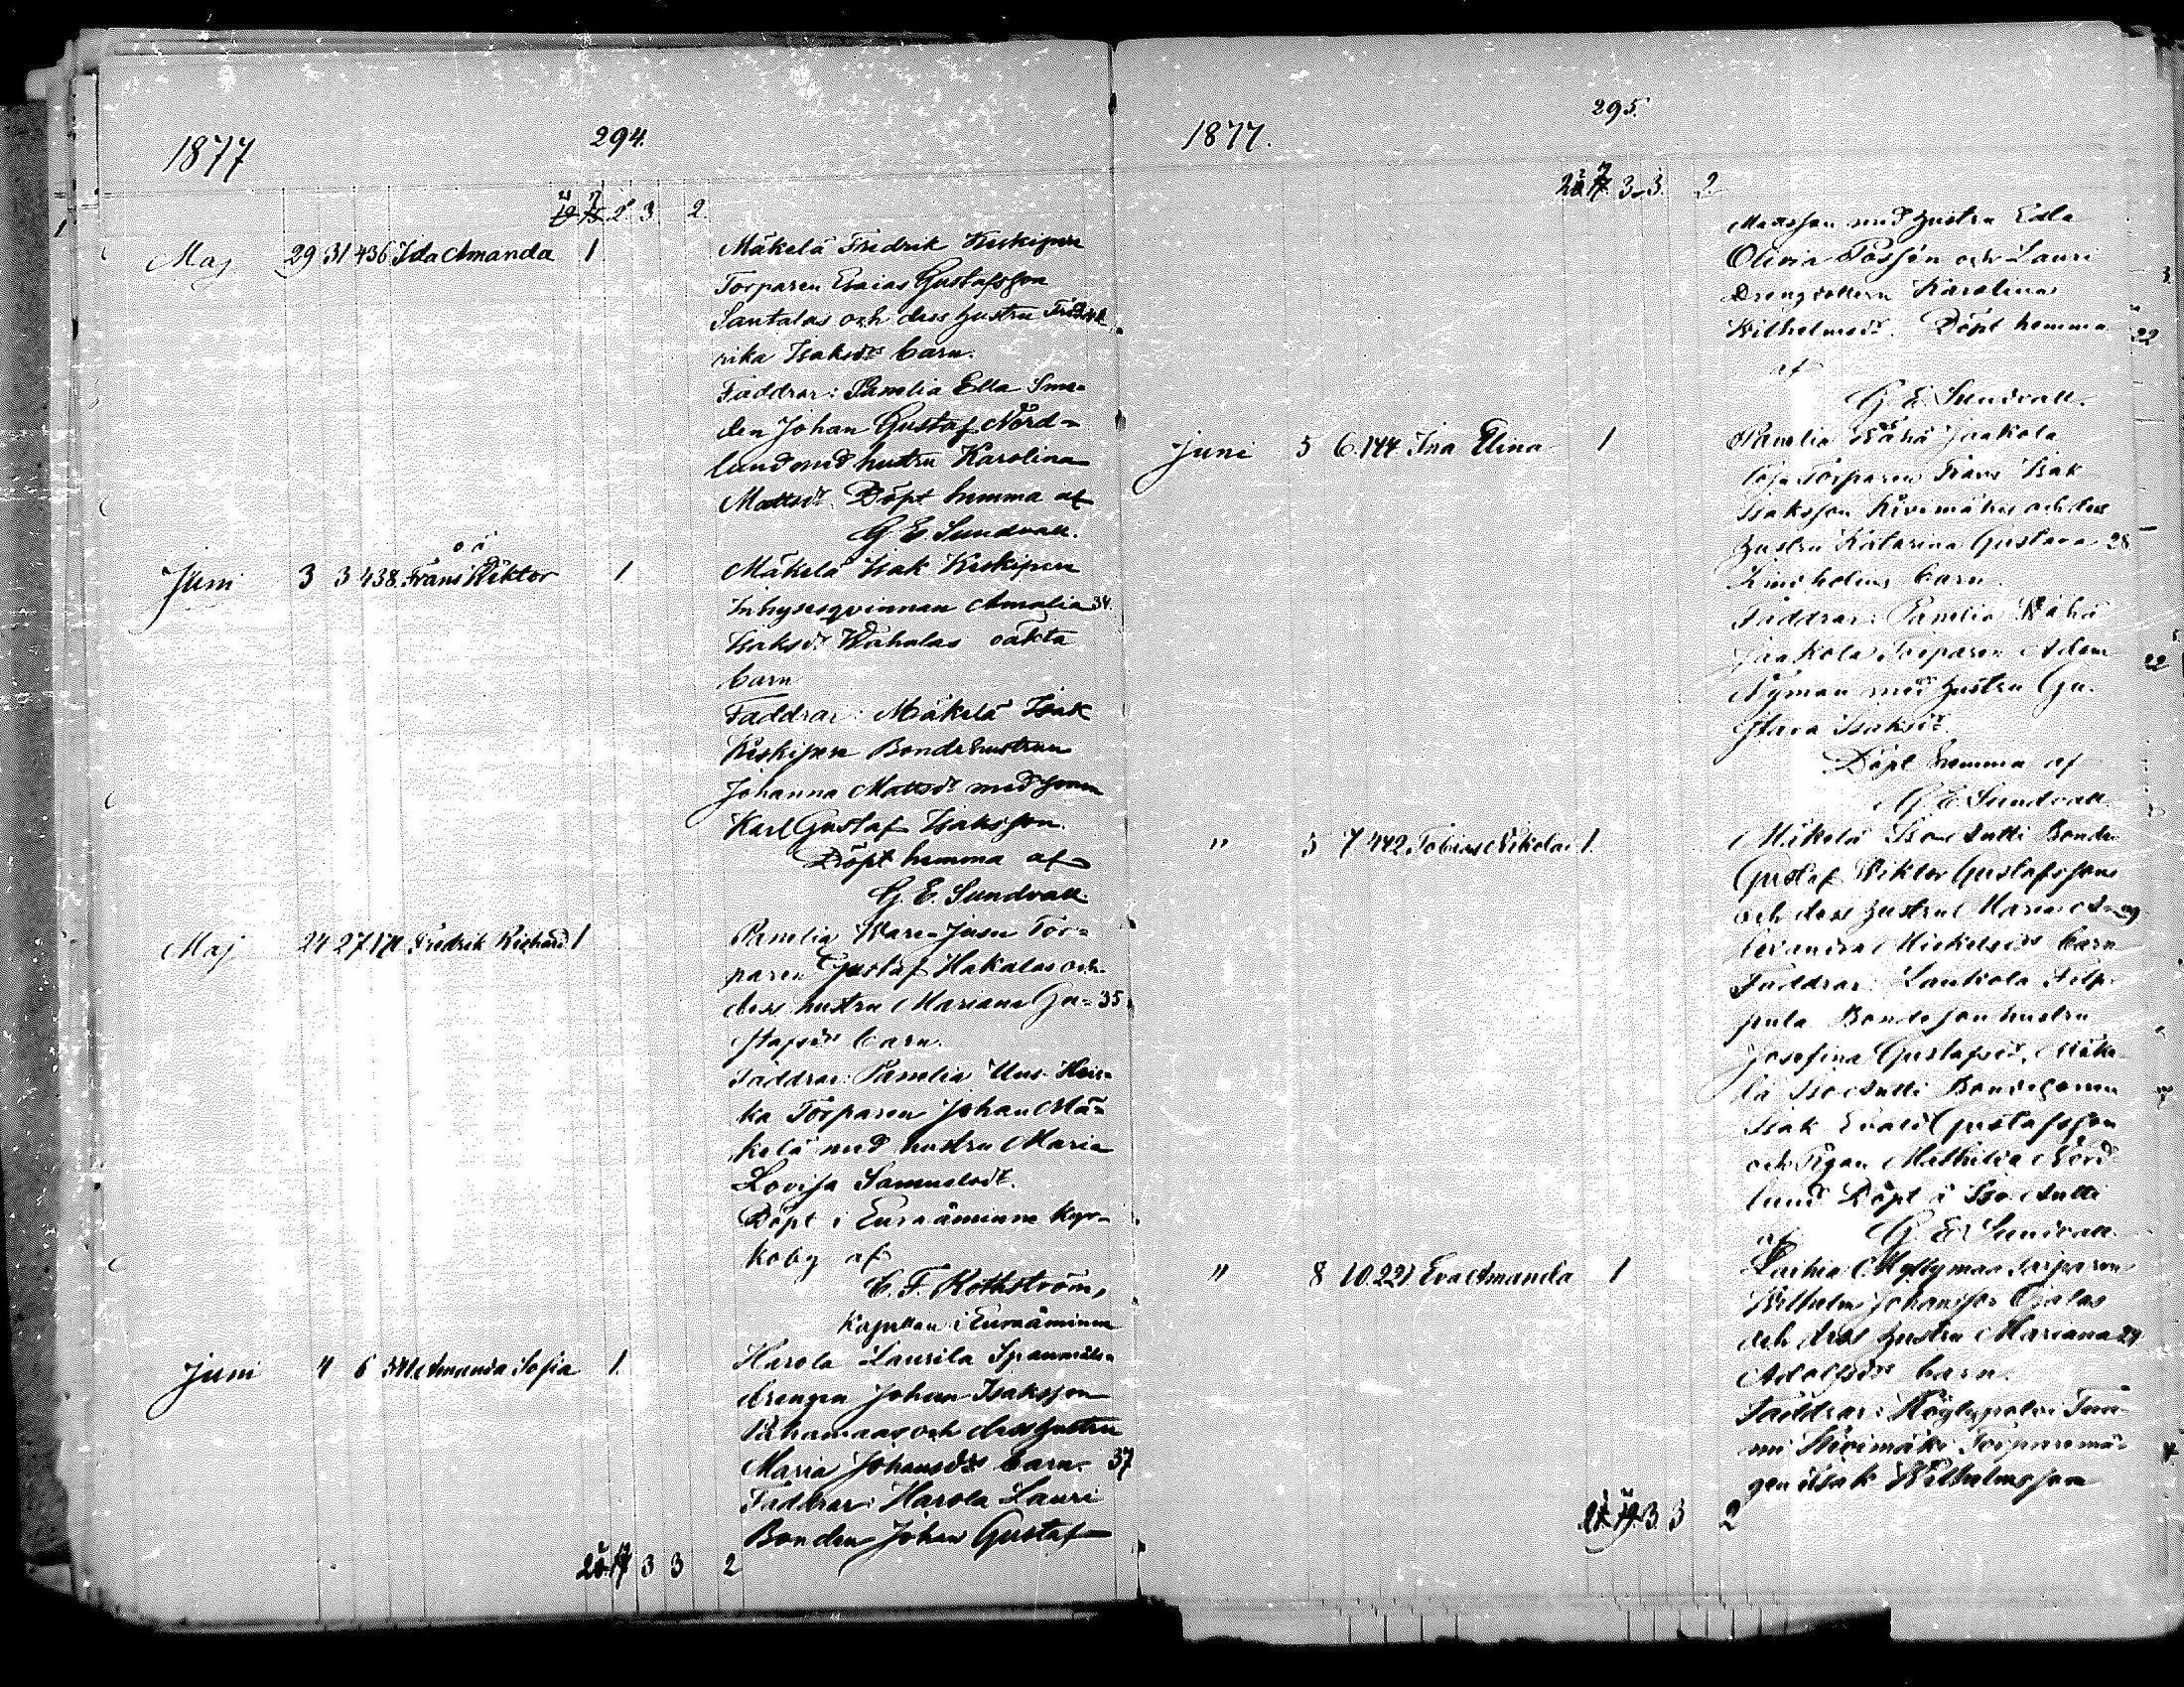 294.
1877
2 3 2
Maj 29 31 436 Ida Amanda 1
Mäkelä Fredrik Keskipere
Torparen Esaias Gustafsson
Santalas och dess hustru Fredrik
rika Isaksdr barn.
Faddrar: Panelia Ella Sme-
den Johan Gustaf Nord-
lund med hustru Karolina
Mattsdr. Döpt hemma af
G. E. Sundvall.
oä
Juni 3 3 438. Frans Wiktor 1
Mäkelä Isak Keskipere
Inhysesqvinnan Amalia 34.
Isaksdr Wahalas oäkta
barn
Faddrar: Mäkelä Isak
Keskipere Bondehustrun
Johanna Mattsdr med sonen
Karl Gustaf Isaksson.
Döpt hemma af
G. E. Sundvall.
Maj 24 27 171. Fredrik Richard 1
Panelia Ware-Jusu Tor-
paren Gustaf Hakalas och
dess hustru Mariana Gu- 35
stafsdr barn.
Faddrar: Panelia Uus- Hei-
ka Torparen Johan Mä-
kelä med hustru Maria
Lovisa Samuelsdr.
Döpt i Euraåminne Kyr-
koby af
C. F. Rothström,
Kapellan i Euraåminne
Juni 4 6 341. Amanda Sofia 1.
Harola Laurila Spanmåls-
drengen Johan Isaksson
och dess hustru
Maria Johansdr barn. 37
Faddrar: Harola Lauri
Bonden Johan Gustaf
3 3 2
295.
1877.
3 3. 2
Mattsson med hustru Edla
Olivia och Lauri
Drengdottern Karolina
Wilhelmsdr. Döpt hemma
af
G. E. Sundvall.
Juni 5 6. 144 Ina Elina 1
Panelia Wähä Jaakola
Torparen Frans Isak
Isaksson Kivimäkis och dess
hustru Katarina Gustava 28
Lindholms barn
Faddrar: Panelia Wähä
Jaakola Torparen Adam
Nyman med hustru Gu-
stava Isaksdr.
Döpt hemma af
G. E. Sundvall
" 5 7 442. Tobias Nikolai 1.
Mäkelä Iso-Antti Bonden
Gustaf Wiktor Gustafssons
och dess hustru Maria A-
lexandra Mickelsdrs barn
Faddrar: Lankola Filp-
pula Bondesonhustru
Josefina Gustafsdr, Mäke-
lä Iso Antti Bondesonen
Isak Evald Gustafsson
och Pigan Mathilda Nord-
lund Döpt i Iso Antti
af G. E. Sundvall.
" 8 10. 221 Eva Amanda 1
Myllymaa Torparen
Wilhelm Johansson Ojalas
och dess hustru Mariana 24
Adolfsdr barn.
Faddrar: Köylypolvi Tuo-
mi Kivimäki Torparemå-
gen Isak Wilhelmsson
3 3 2